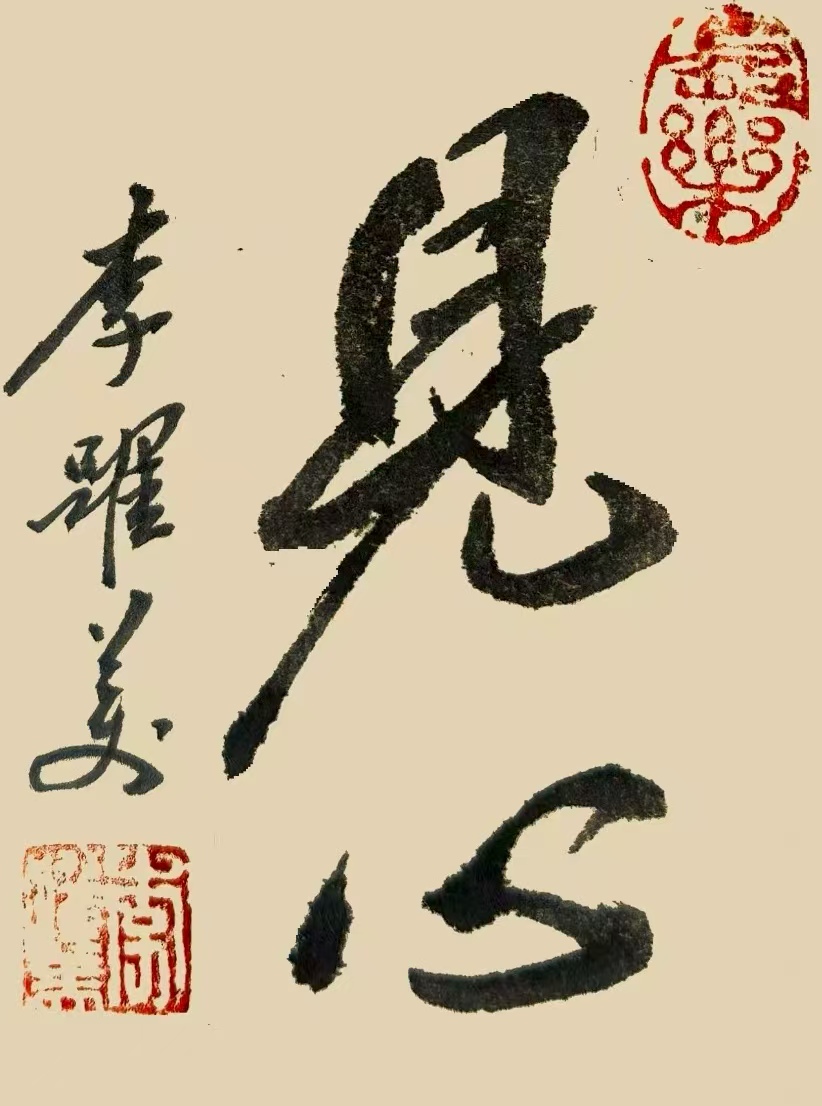 見心
李躍美